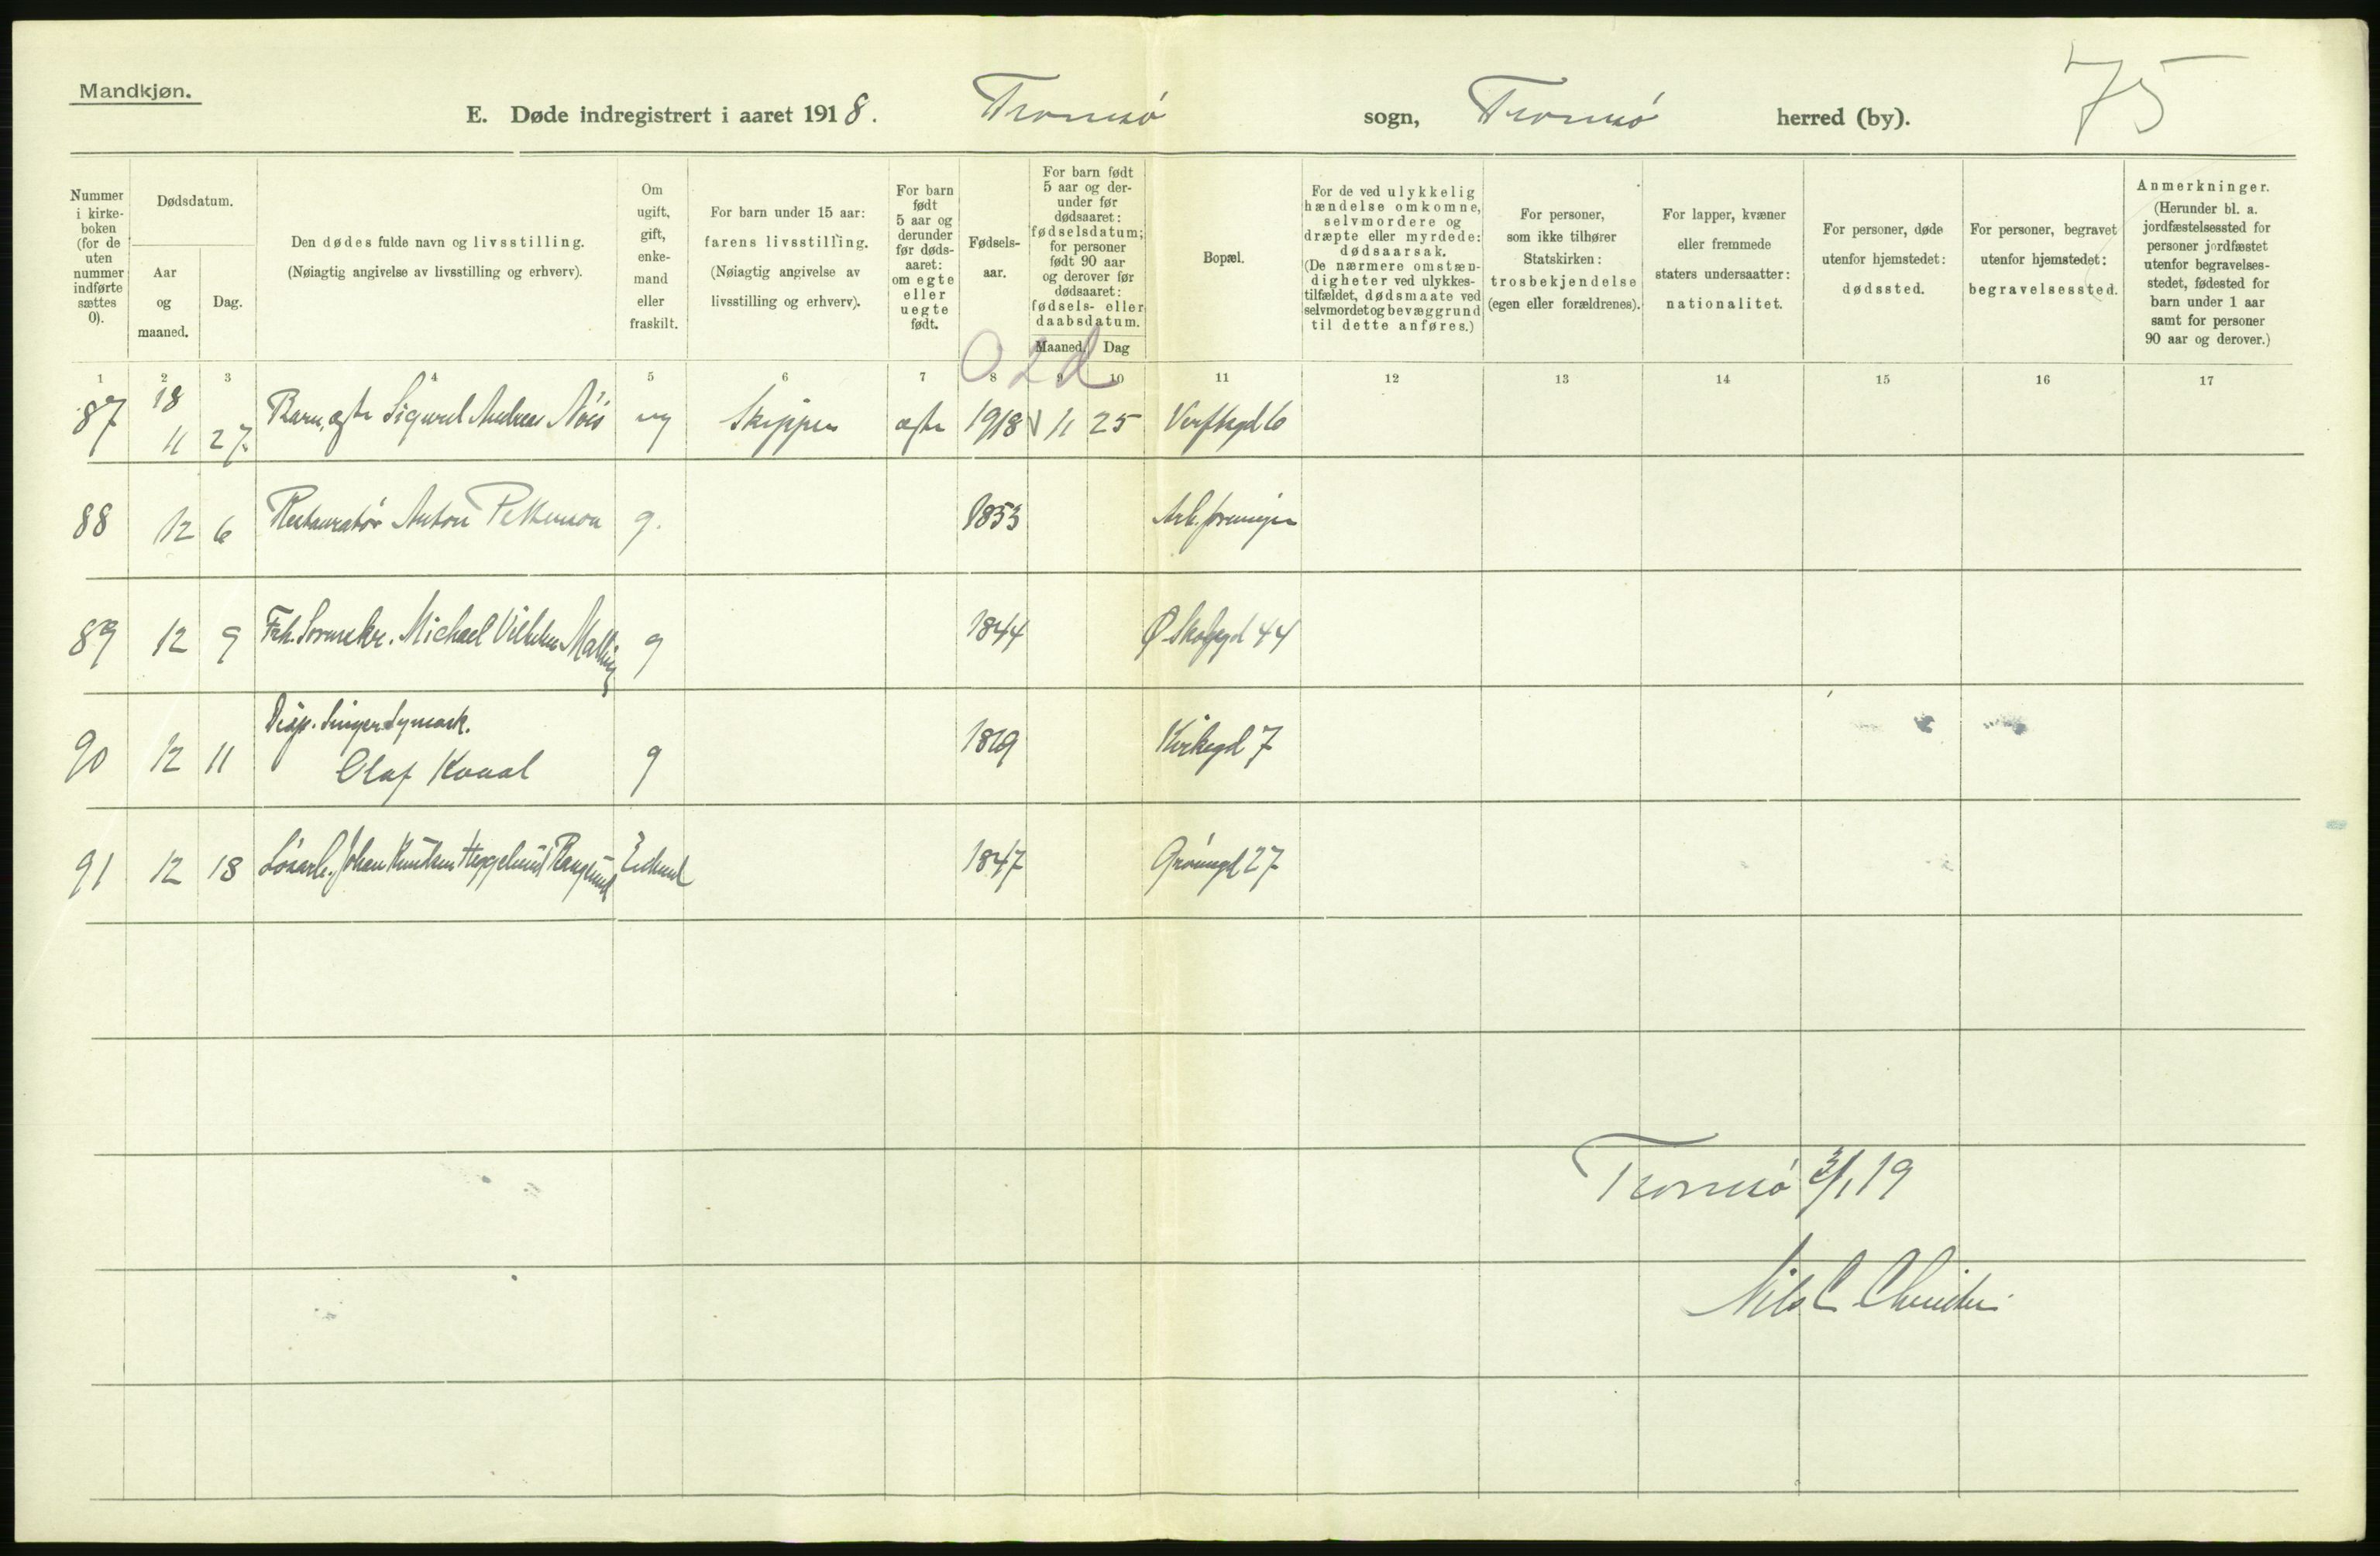 Mandkjøn.
E. Døde indregistrert i aaret 1918. Tromsø sogn, Tromsø herred (by). 75
Nummer i kirke- boken (for de uten nummer indførte sættes 0).
Dødsdatum.
Aar og maaned.
Dag.
Den dødes fulde navn og livsstilling.
(Nøiagtig angivelse av livsstilling og erhverv).
Om ugift, gift, enke- mand eller fraskilt.
For barn under 15 aar: farens livsstilling.
(Nøiagtig angivelse av livsstilling og erhverv).
For barn født 5 aar og derunder før døds- aaret: om egte eller uegte født.
Fødsels- aar.
For barn født 5 aar og der- under før dødsaaret: fødselsdatum; for personer født 90 aar og derover før dødsaaret: fødsels- eller daabsdatum.
Maaned. Dag
Bopæl.
For de ved ulykkelig hændelse omkomne, selvmordere og dræpte eller myrdede: dødsaarsak.
(De nærmere omstæn- digheter ved ulykkes- tilfældet, dødsmaate ved selvmordet og bevæggrund til dette anføres.)
For personer, som ikke tilhører Statskirken: trosbekjendelse (egen eller forældrenes).
For lapper, kvæner eller fremmede staters undersaatter: nationalitet.
For personer, døde utenfor hjemstedet: dødssted.
For personer, begravet utenfor hjemstedet: begravelsessted.
Anmerkninger.
(Herunder bl. a. jordfæstelsessted for personer jordfæstet utenfor begravelses- stedet, fødested for barn under 1 aar samt for personer 90 aar og derover.)
0 2d
1 2 3 4 5 6 7 8 9 10 11 12 13 14 15 16 17
87 18 11 27. Barn, ægte Sigurd Andreas Nøis ug Skipper ægte 1918 11 25 Verftsgd 6
88 12 6 Restauratør Anton Pettersen g. 1853 Arb.foreningen
89 12 9 Fhv. Sorenskr. Michael Vilhelm Malling g 1844 Ø Skolegd 44
90 12 11 Disp. Singer Symask.
Olaf Kvaal g Kirkegd 7
91 12 18 Løsarb. Johan Knudsen Heggelund Enkemd 1847 Grønnegd 27
Tromsø 3/1 19
Nils C